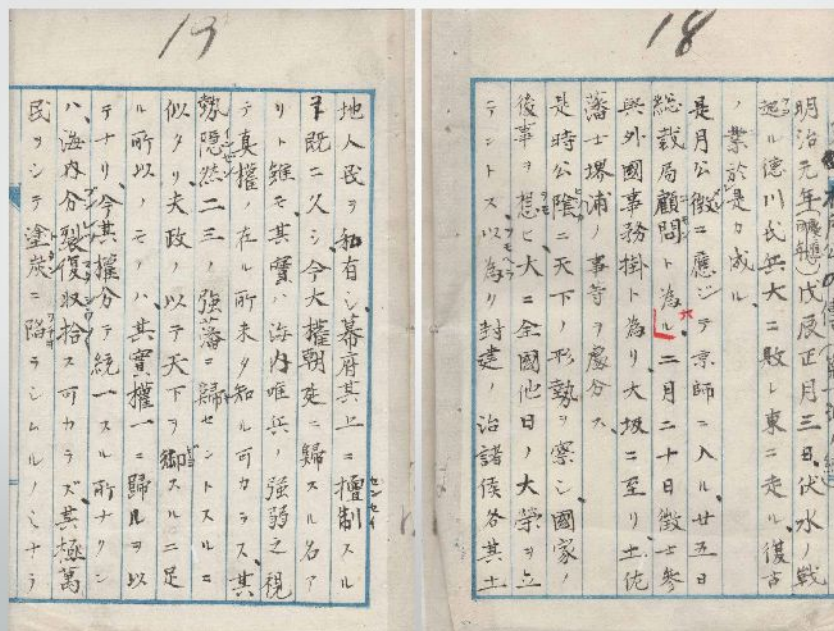 18
明治元年(慶應四年)戊辰正月三日、伏水ノ戰
起ル徳川氏兵大ニ敗レ東ニ走ル、復古
ノ業於是カ成ル、
是月公徴ニ應ジテ京師ニ入ル、廿五日
総裁局顧問ト為ル、二月二十日徴士参
與外國事務掛ト為リ大坂ニ至リ、土佐
藩士堺浦ノ事等ヲ處分ス、
是時公陰ニ天下ノ形勢ヲ察シ國家ノ
後事ヲ想ヒ大ニ全國他日ノ大策ヲ立
テントス、以為ク封建ノ治諸侯各其土
19
地人民ヲ私有シ、幕府其上ニ擅制スル
既ニ久シ、今大權朝廷ニ歸スル名ア
リト雖モ、其實ハ海内唯兵ノ強弱之視
テ真權ノ在ル所未タ知ル可カラス、其
勢隠然二三ノ強藩ニ歸セントスルニ
似タリ、夫政ノ以テ天下ヲ御スルニ足
ル所以ノモノハ、其實權一ニ歸ルヲ以
テナリ、今其權分テ統一スル所ナクン
ハ、海内分裂復収拾ス可カラズ、其極萬
民ヲシテ塗炭ニ陥ラシムルノミナラ